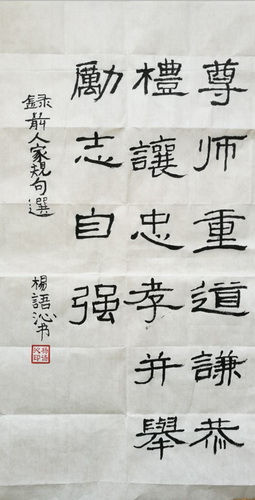 尊师重道謙恭
禮讓忠孝并舉
勵志自强
録前人家規句選
楊語沁书